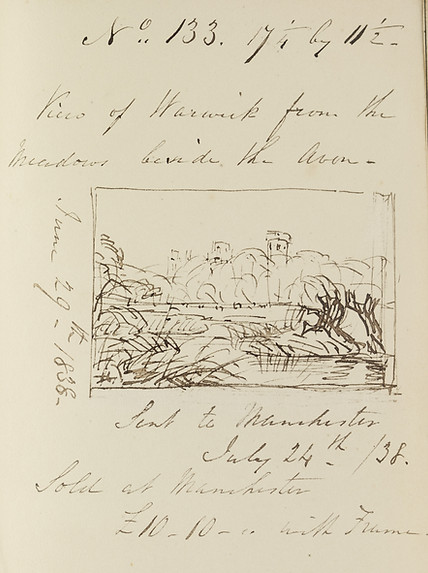 No. 133. 17 1/4 by 11 1/2 -
View of Warwick from the
Meadows beside the Avon -
June 29th - 1838 -
Sent to Manchester
July 24th /38.
Sold at Manchester
£10 - 10 - 0 with Frame -